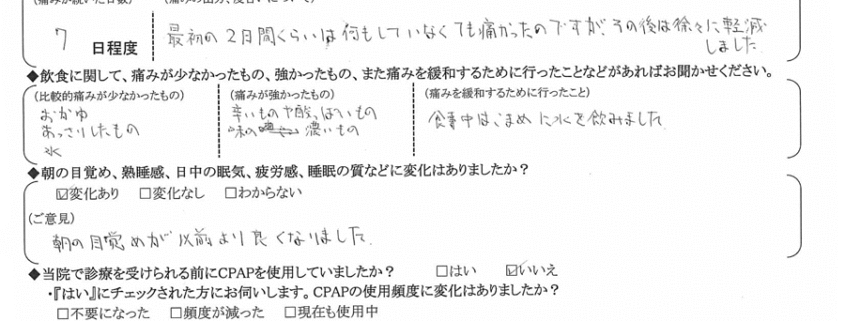 (痛みが続いた日数) (痛みの出方、度合いについて)
7 日程度 最初の2日間くらいは何もしていなくても痛かったのですが、その後は徐々に軽減
しました
◆飲食に関して、痛みが少なかったもの、強かったもの、また痛みを緩和するために行ったことなどがあればお聞かせください。
(比較的痛みが少なかったもの) (痛みが強かったもの) (痛みを緩和するために行ったこと)
おかゆ 辛いものや酸っぱいもの 食事中はこまめに水を飲みました
あっさりしたもの 味の濃いもの
水
◆朝の目覚め、熟睡感、日中の眠気、疲労感、睡眠の質などに変化はありましたか？
☑変化あり □変化なし □わからない
(ご意見)
朝の目覚めが以前より良くなりました。
◆当院で診療を受けられる前にCPAPを使用していましたか？ □はい ☑いいえ
・『はい』にチェックされた方にお伺いします。CPAPの使用頻度に変化はありましたか？
□不要になった □頻度が減った □現在も使用中